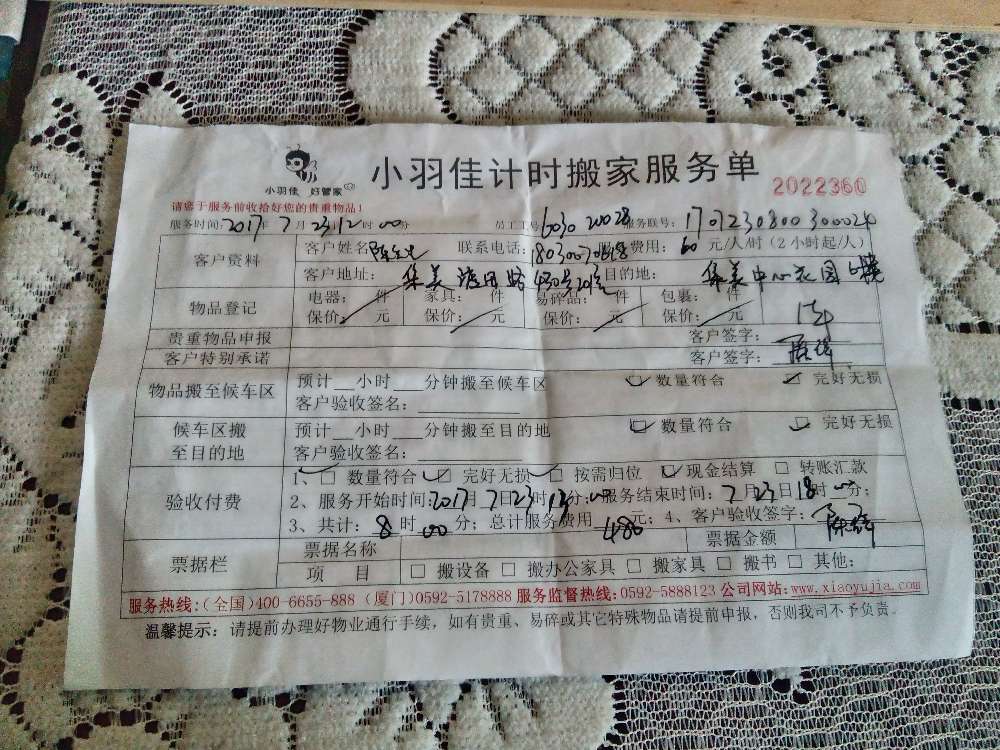 小羽佳 好管家
小羽佳计时搬家服务单
2022360
请您于服务前收拾好您的贵重物品!
服务时间:2017年7月23日12时00分 员工工号:6030 20028 服务联号:1707230800300024
客户资料
客户姓名: 联系电话: 服务费用:60元/人/时(2小时起/人)
客户地址:集美 路 目的地:集美中心花园
物品登记
电器: 件 家具: 件 易碎品: 件 包裹: 件
保价: 元 保价: 元 保价: 元 保价: 元
贵重物品申报 客户签字:
客户特别承诺 客户签字:
物品搬至候车区
预计__小时___分钟搬至候车区 数量符合 完好无损
客户验收签名:
候车区搬至目的地
预计__小时___分钟搬至目的地 数量符合 完好无损
客户验收签名:
验收付费
1、□ 数量符合 □ 完好无损 □ 按需归位 □ 现金结算 □ 转账汇款
2、服务开始时间:2017月7日23时 分;服务结束时间:7月23日18时00分;
3、共计:8时00分;总计服务费用480元;4、客户验收签字:
票据栏
票据名称 票据金额
项 目 □ 搬设备 □ 搬办公家具 □ 搬家具 □ 搬书 □ 其他:
服务热线:(全国)400-6655-888 (厦门)0592-5178888 服务监督热线:0592-5888123 公司网站:www.xiaoyujia.com
温馨提示:请提前办理好物业通行手续,如有贵重、易碎或其它特殊物品请提前申报,否则我司不予负责。